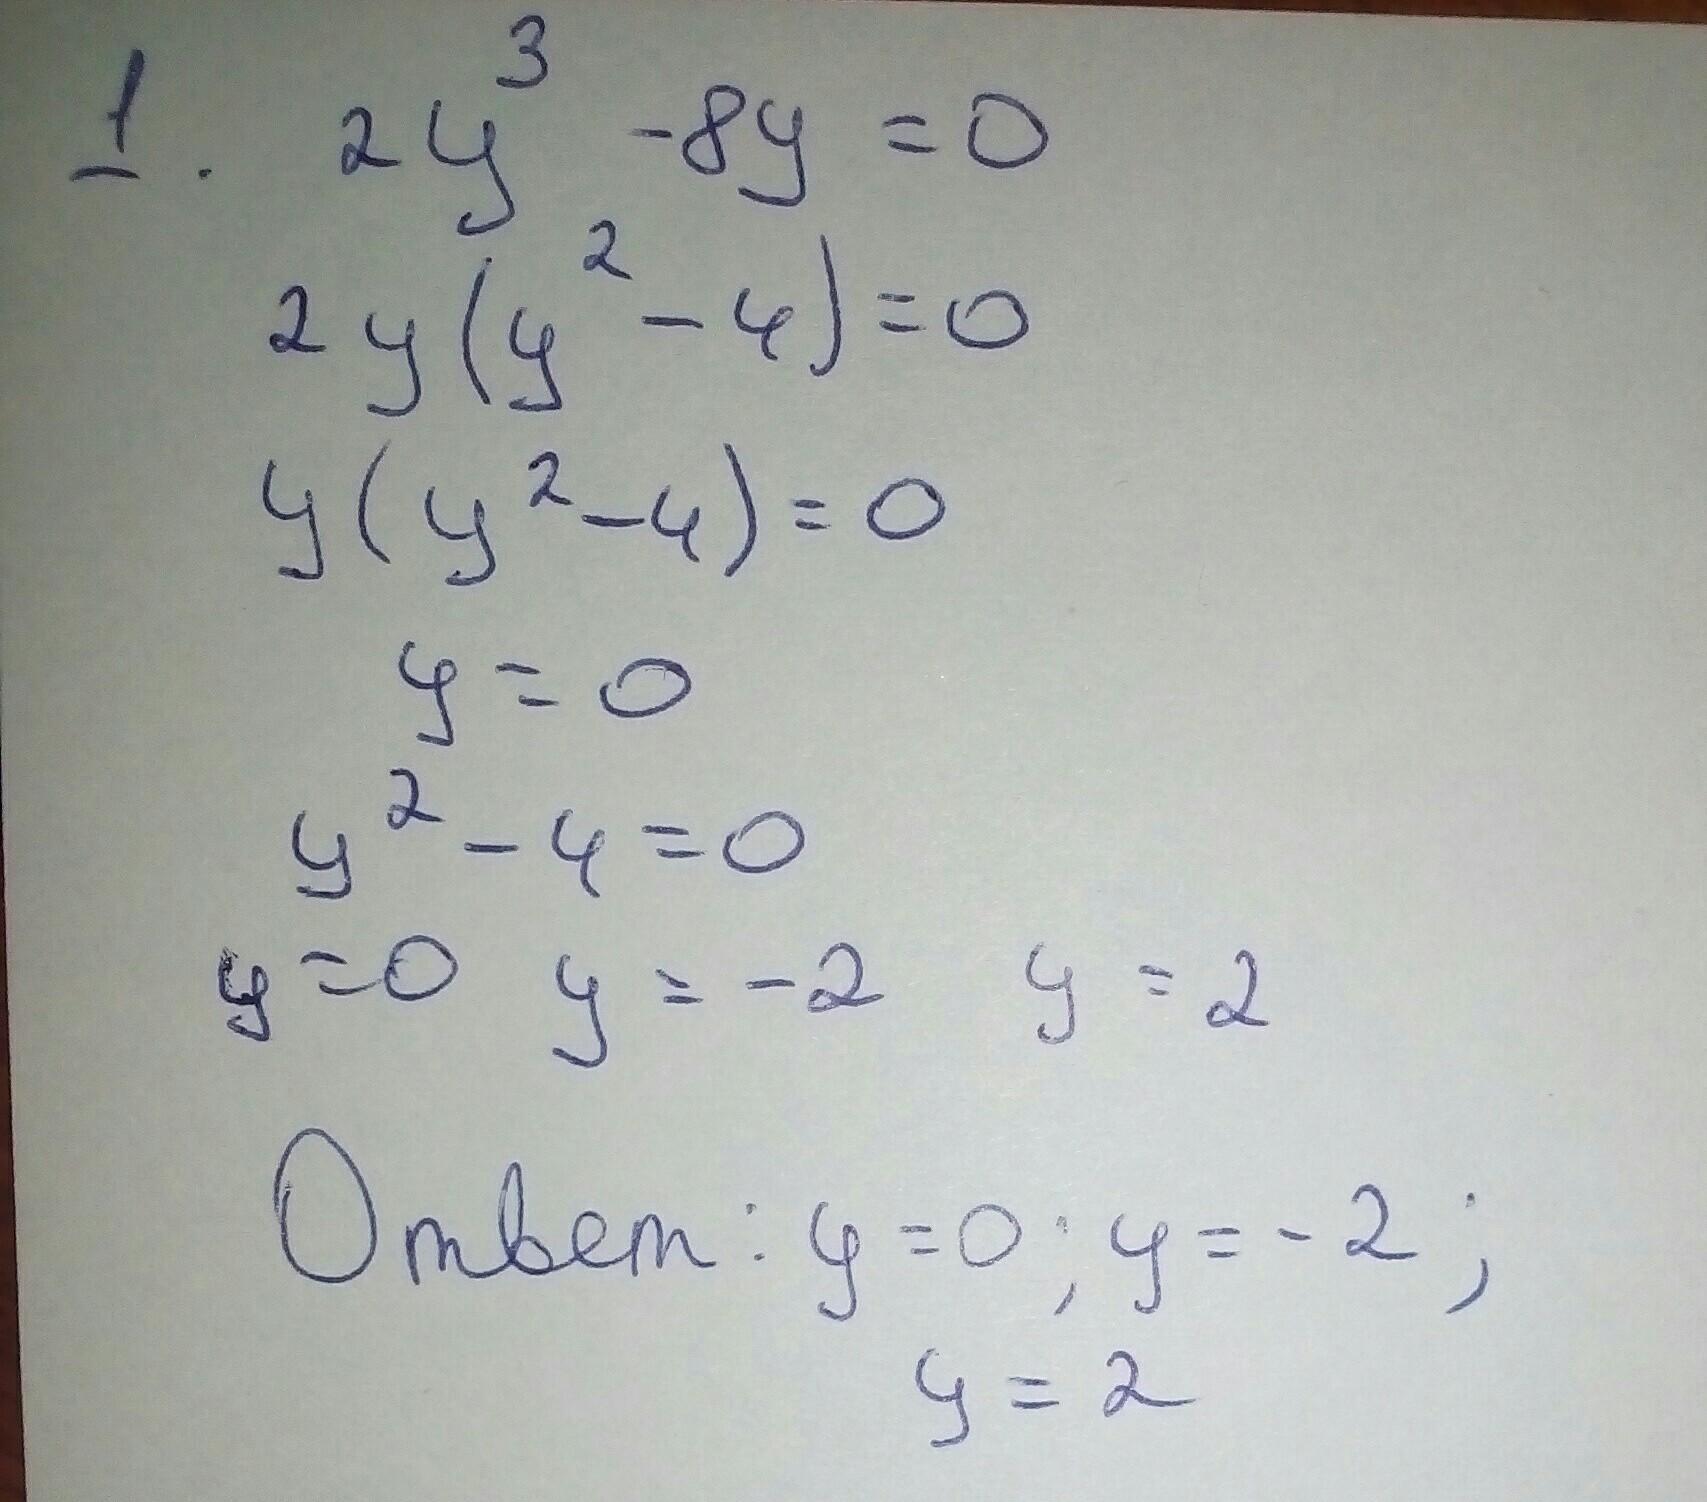 1. 2y³ -8y = 0
2y(y² - 4) = 0
y(y² - 4) = 0
y = 0
y² - 4 = 0
y = 0 y = -2 y = 2
Ответ: y = 0; y = -2;
y = 2